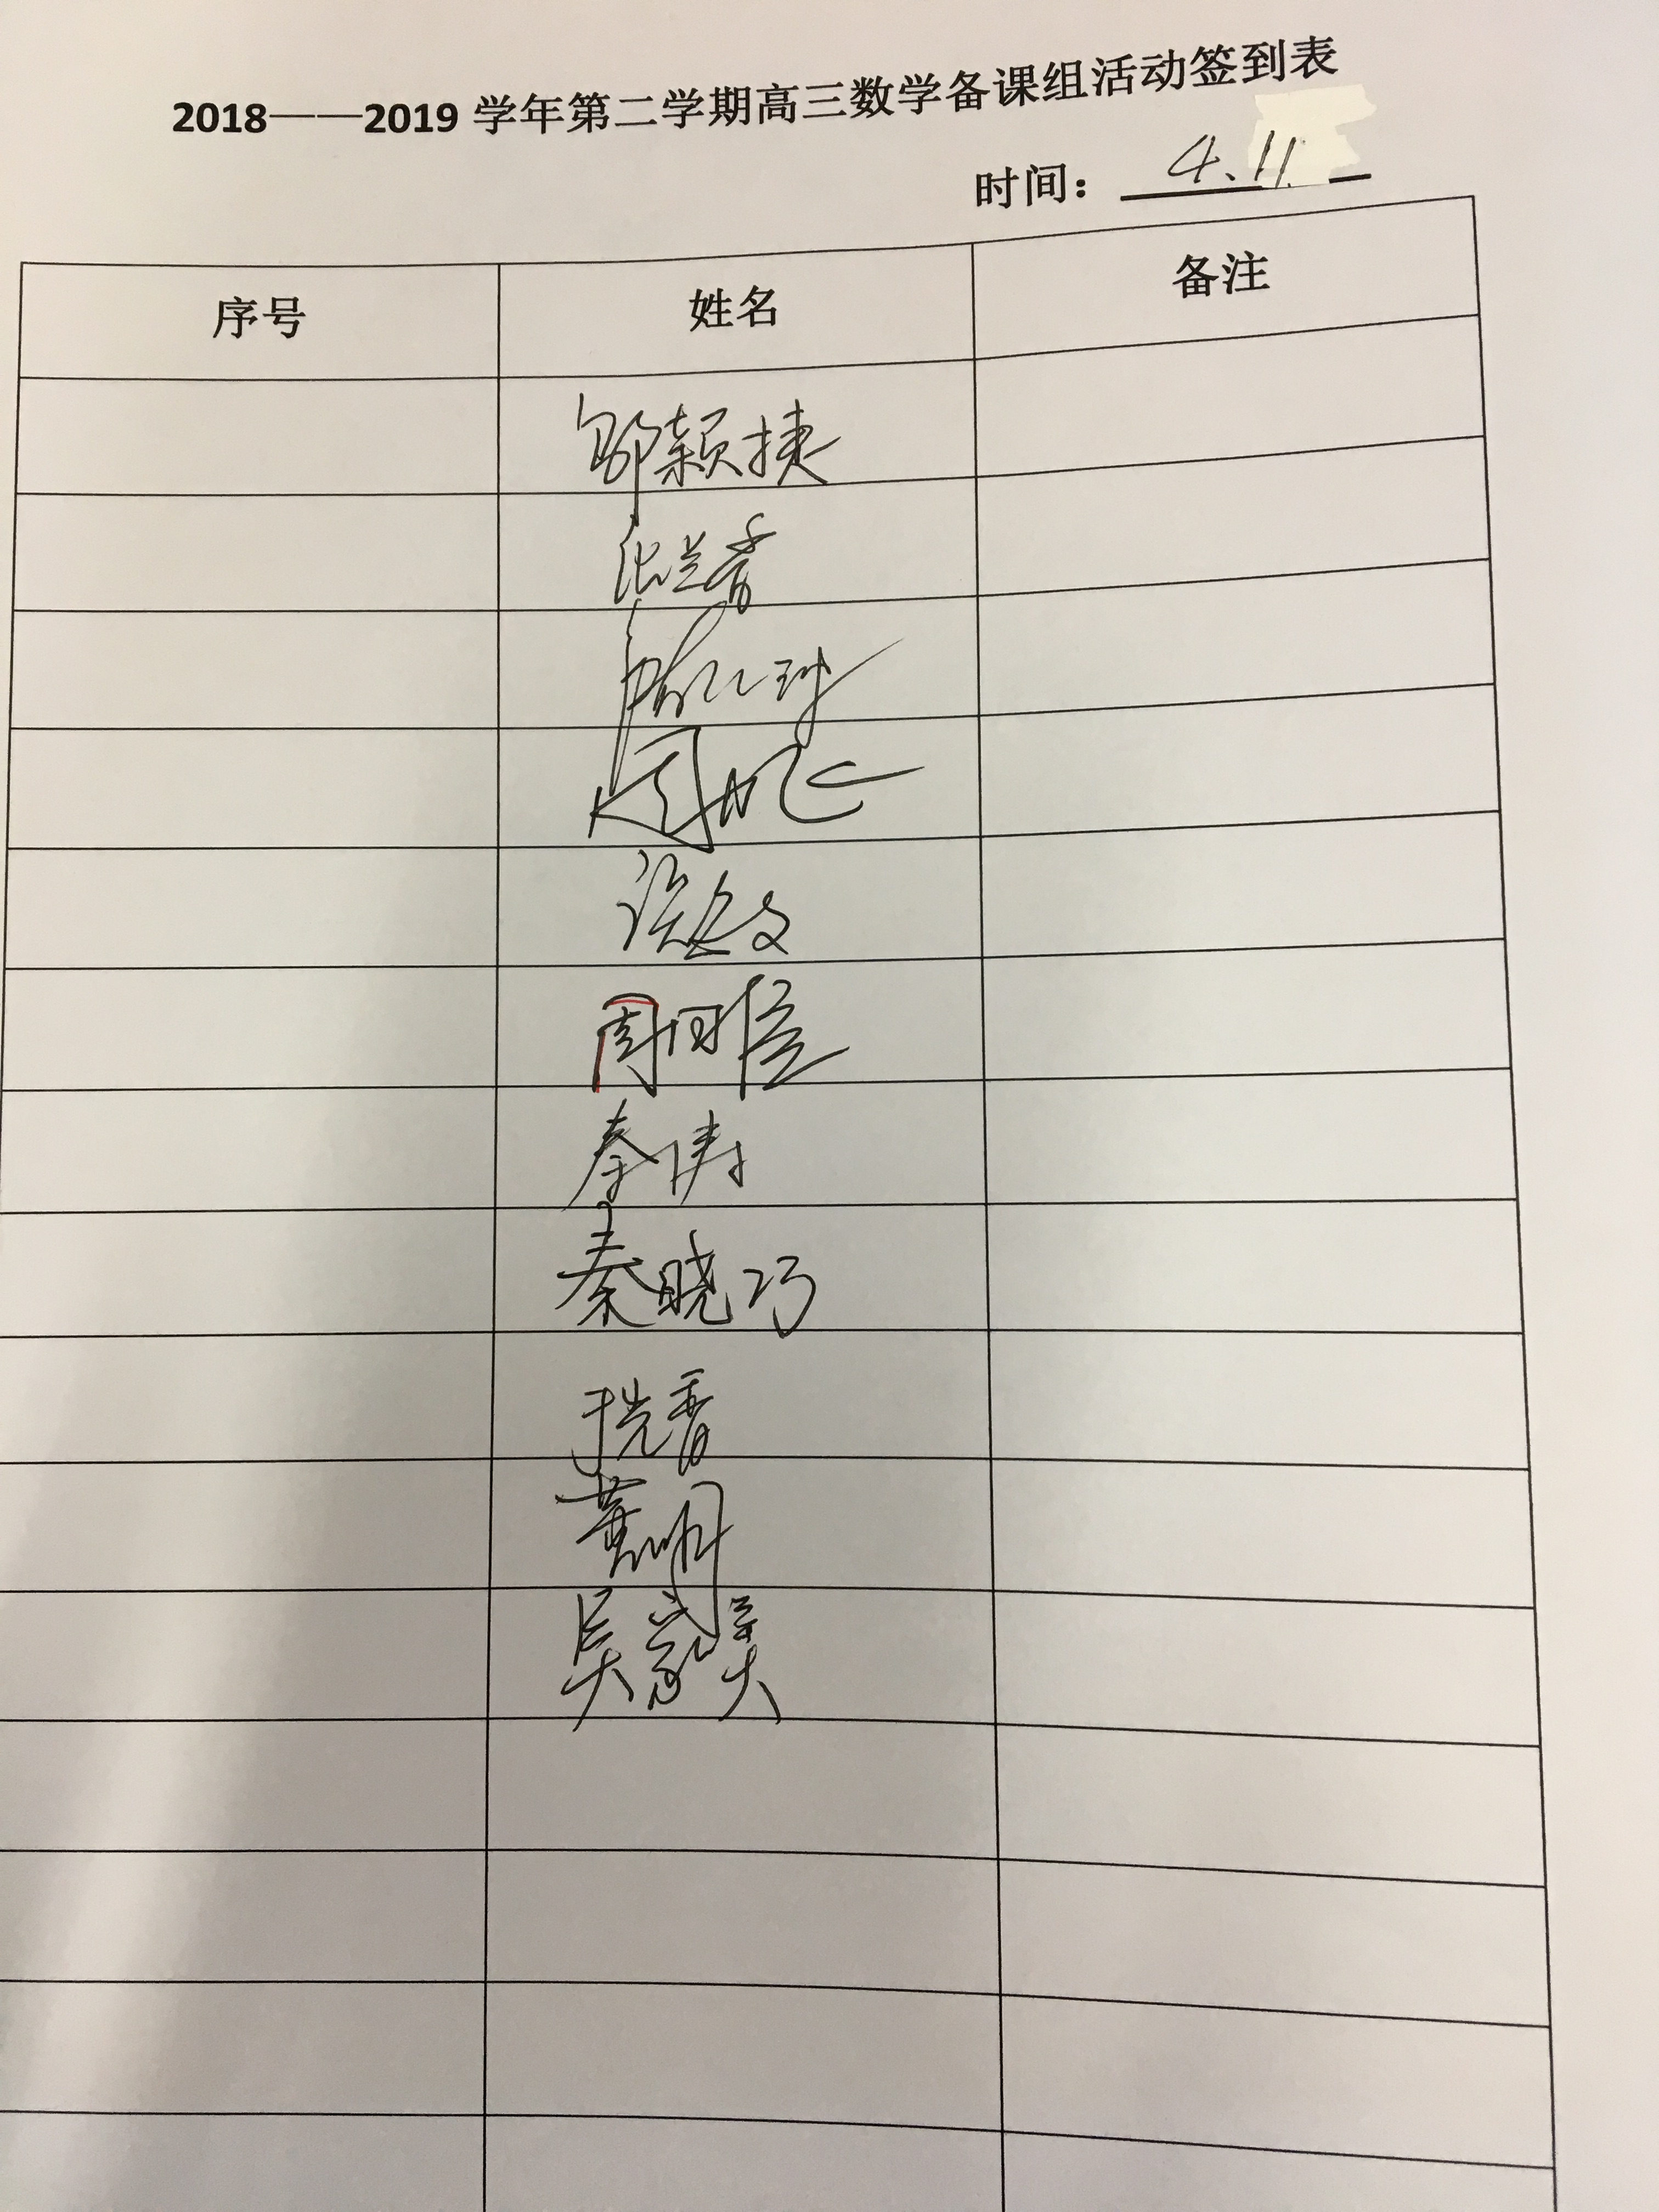 2018——2019 学年第二学期高三数学备课组活动签到表
时间： 4、11
序号 姓名 备注
邬颖捷
张兰香
秦涛
秦晓巧
于光香
黄明
吴家美